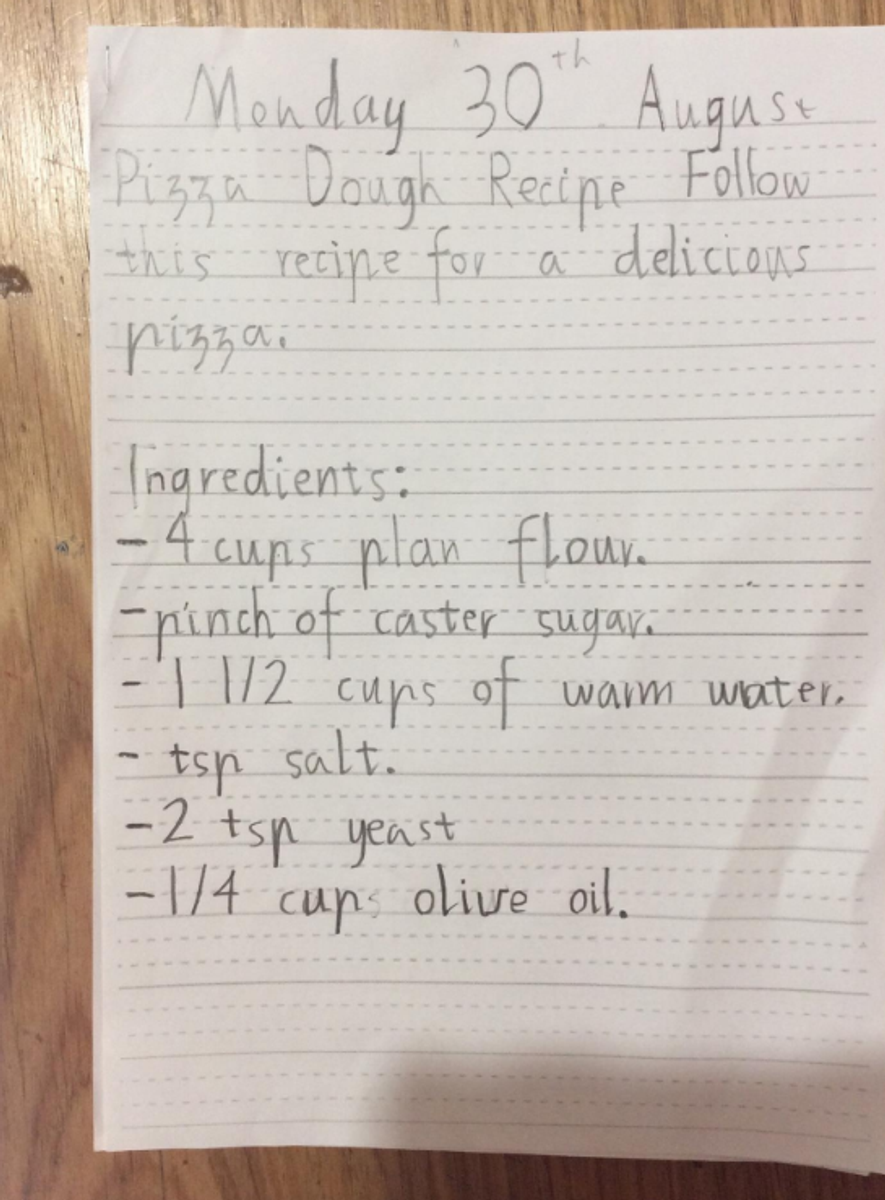 Monday 30th August
Pizza Dough Recipe Follow
this recipe for a delicious
pizza.
Ingredients:
- 4 cups plan flour.
- pinch of caster sugar.
- 1 1/2 cups of warm water.
- tsp salt.
- 2 tsp yeast
- 1/4 cups olive oil.